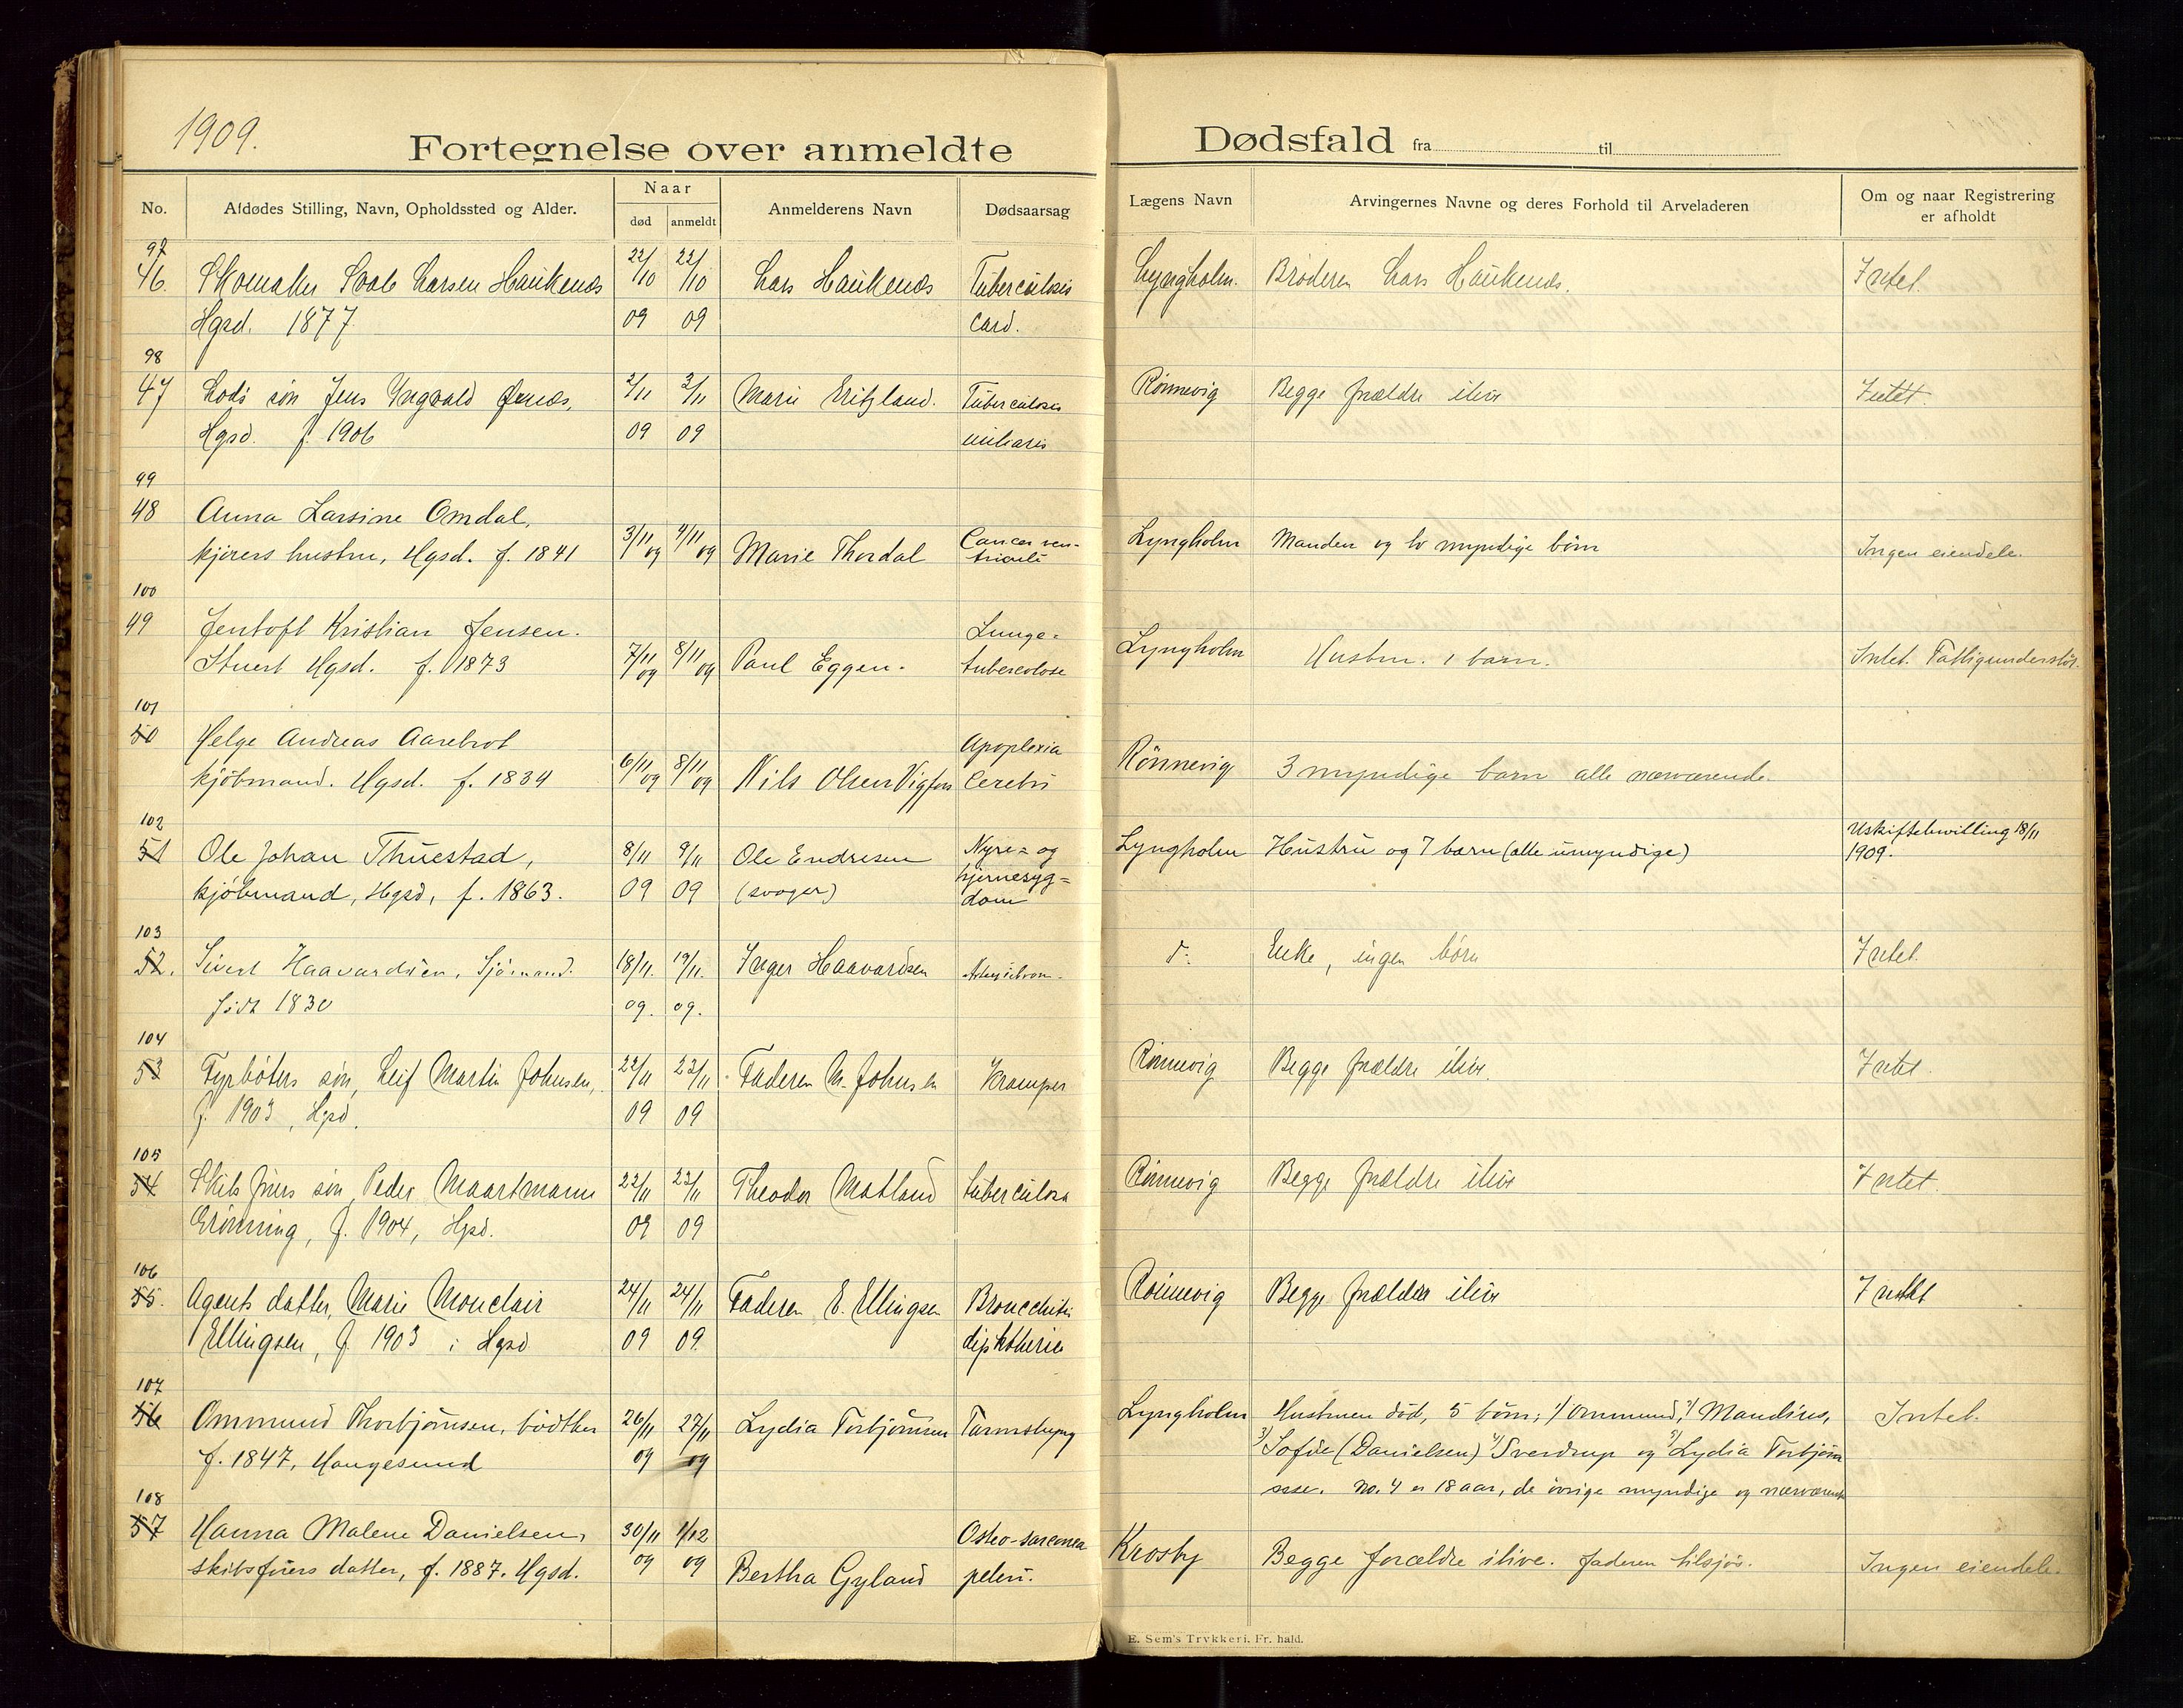 1909.
Fortegnelse over anmeldte Dødsfald fra til
No.
Afdødes Stilling, Navn, Opholdssted og Alder.
Naar
død
anmeldt
Anmelderens Navn
Dødsaarsag
Lægens Navn
Arvingernes Navne og deres Forhold til Arveladeren
Om og naar Registrering
er afholdt
97
46. Skomaker Larsen Haukenæs 22/10 22/10 Lars Haukenæs Tuberculosis Lyngholm. Broderen Lars Haukenæs. Intet.
Hgsd. 1877 09 09 card.
98
47 Lods søn Jens Ingvald Ørnæs, 2/11 3/11 Marie Eritzland. Tuberculosis Rønnevig Begge forældre ilive Intet.
Hgsd. f. 1906 09 09 miliaris
99
48 Anna Larsine Omdal,
kjørers hustru, Hgsd. f. 1841 3/11 09 4/11 09 Marie Thordal Cancer ven-
triculi Lyngholm Manden og to myndige børn Ingen eiendele.
100
49 Jentoft Kristian Jensen. Lunge-
Stuert Hgsd. f. 1873 7/11 09 8/11 09 Paul Eggen. tuberculose Lyngholm Hustru. 1 barn. Intet. Fattigunderstøt.
101
50 Helge Andreas Aarebrot Apoplexia
kjøbmand. Hgsd. f. 1834 6/11 09 8/11 09 Nils Olsen Vigfors Cerebri Rønnevig 3 myndige barn alle nærværende.
102
51 Ole Johan Thuestad, 8/11 9/11 Ole Endresen Nyre- og Lyngholm Hustru og 7 barn (alle umyndige) Uskiftebevilling 18/11
1909.
kjøbmand, Hgsd, f. 1863. 09 09 (svoger) hjernesyg-
dom
103
52. Sivert Haavardsen, Sjømand. 18/11. 19/11. Inger Haavardsen do: Enke, ingen børn Intet.
født 1830 09. 09.
104
53 Fyrbøters søn, Leif Martin Johnsen, 22/11 23/11 Faderen M. Johnsen Kramper Rønnevig Begge forældre ilive. Intet.
f. 1903, Hgsd. 09 09
105
54 Skibsførers søn, Peder Maartmann 22/11 23/11 Theodor Matland tuberculose Rønnevig Begge forældre ilive Intet.
Grønning, f. 1904, Hgsd. 09 09
106
55. Agents datter, Marie Monclair 24/11 24/11 Faderen E. Ellingsen Bronchitis Rønnevig Begge forældre ilive Intet
Ellingsen, f. 1903 i Hgsd 09 09 diphtheria
107
56 Ommund Thorbjørnsen, bødtker 26/11 27/11 Lydia Torbjørnsen Tarmslyng Lyngholm Hustruen død, 5 børn; 1/ Ommund, 2/ Mandius, Intet.
f. 1847, Haugesund 09 09 3/ Sofie (Danielsen) 4/ Sverdrup og 5/ Lydia Torbjørn
sen. No. 4 er 18 aar, de øvrige myndige og nærværende
108
57 Hanna Malene Danielsen, 30/11 1/12 Osteo-sarcoma Krosby
skibsførers datter, f. 1887. Hgsd. 09 09 Bertha Gyland pelvi. Begge forældre ilive. faderen tilsjøs. Ingen eiendele.
E. Sem's Trykkeri, Fr.hald.